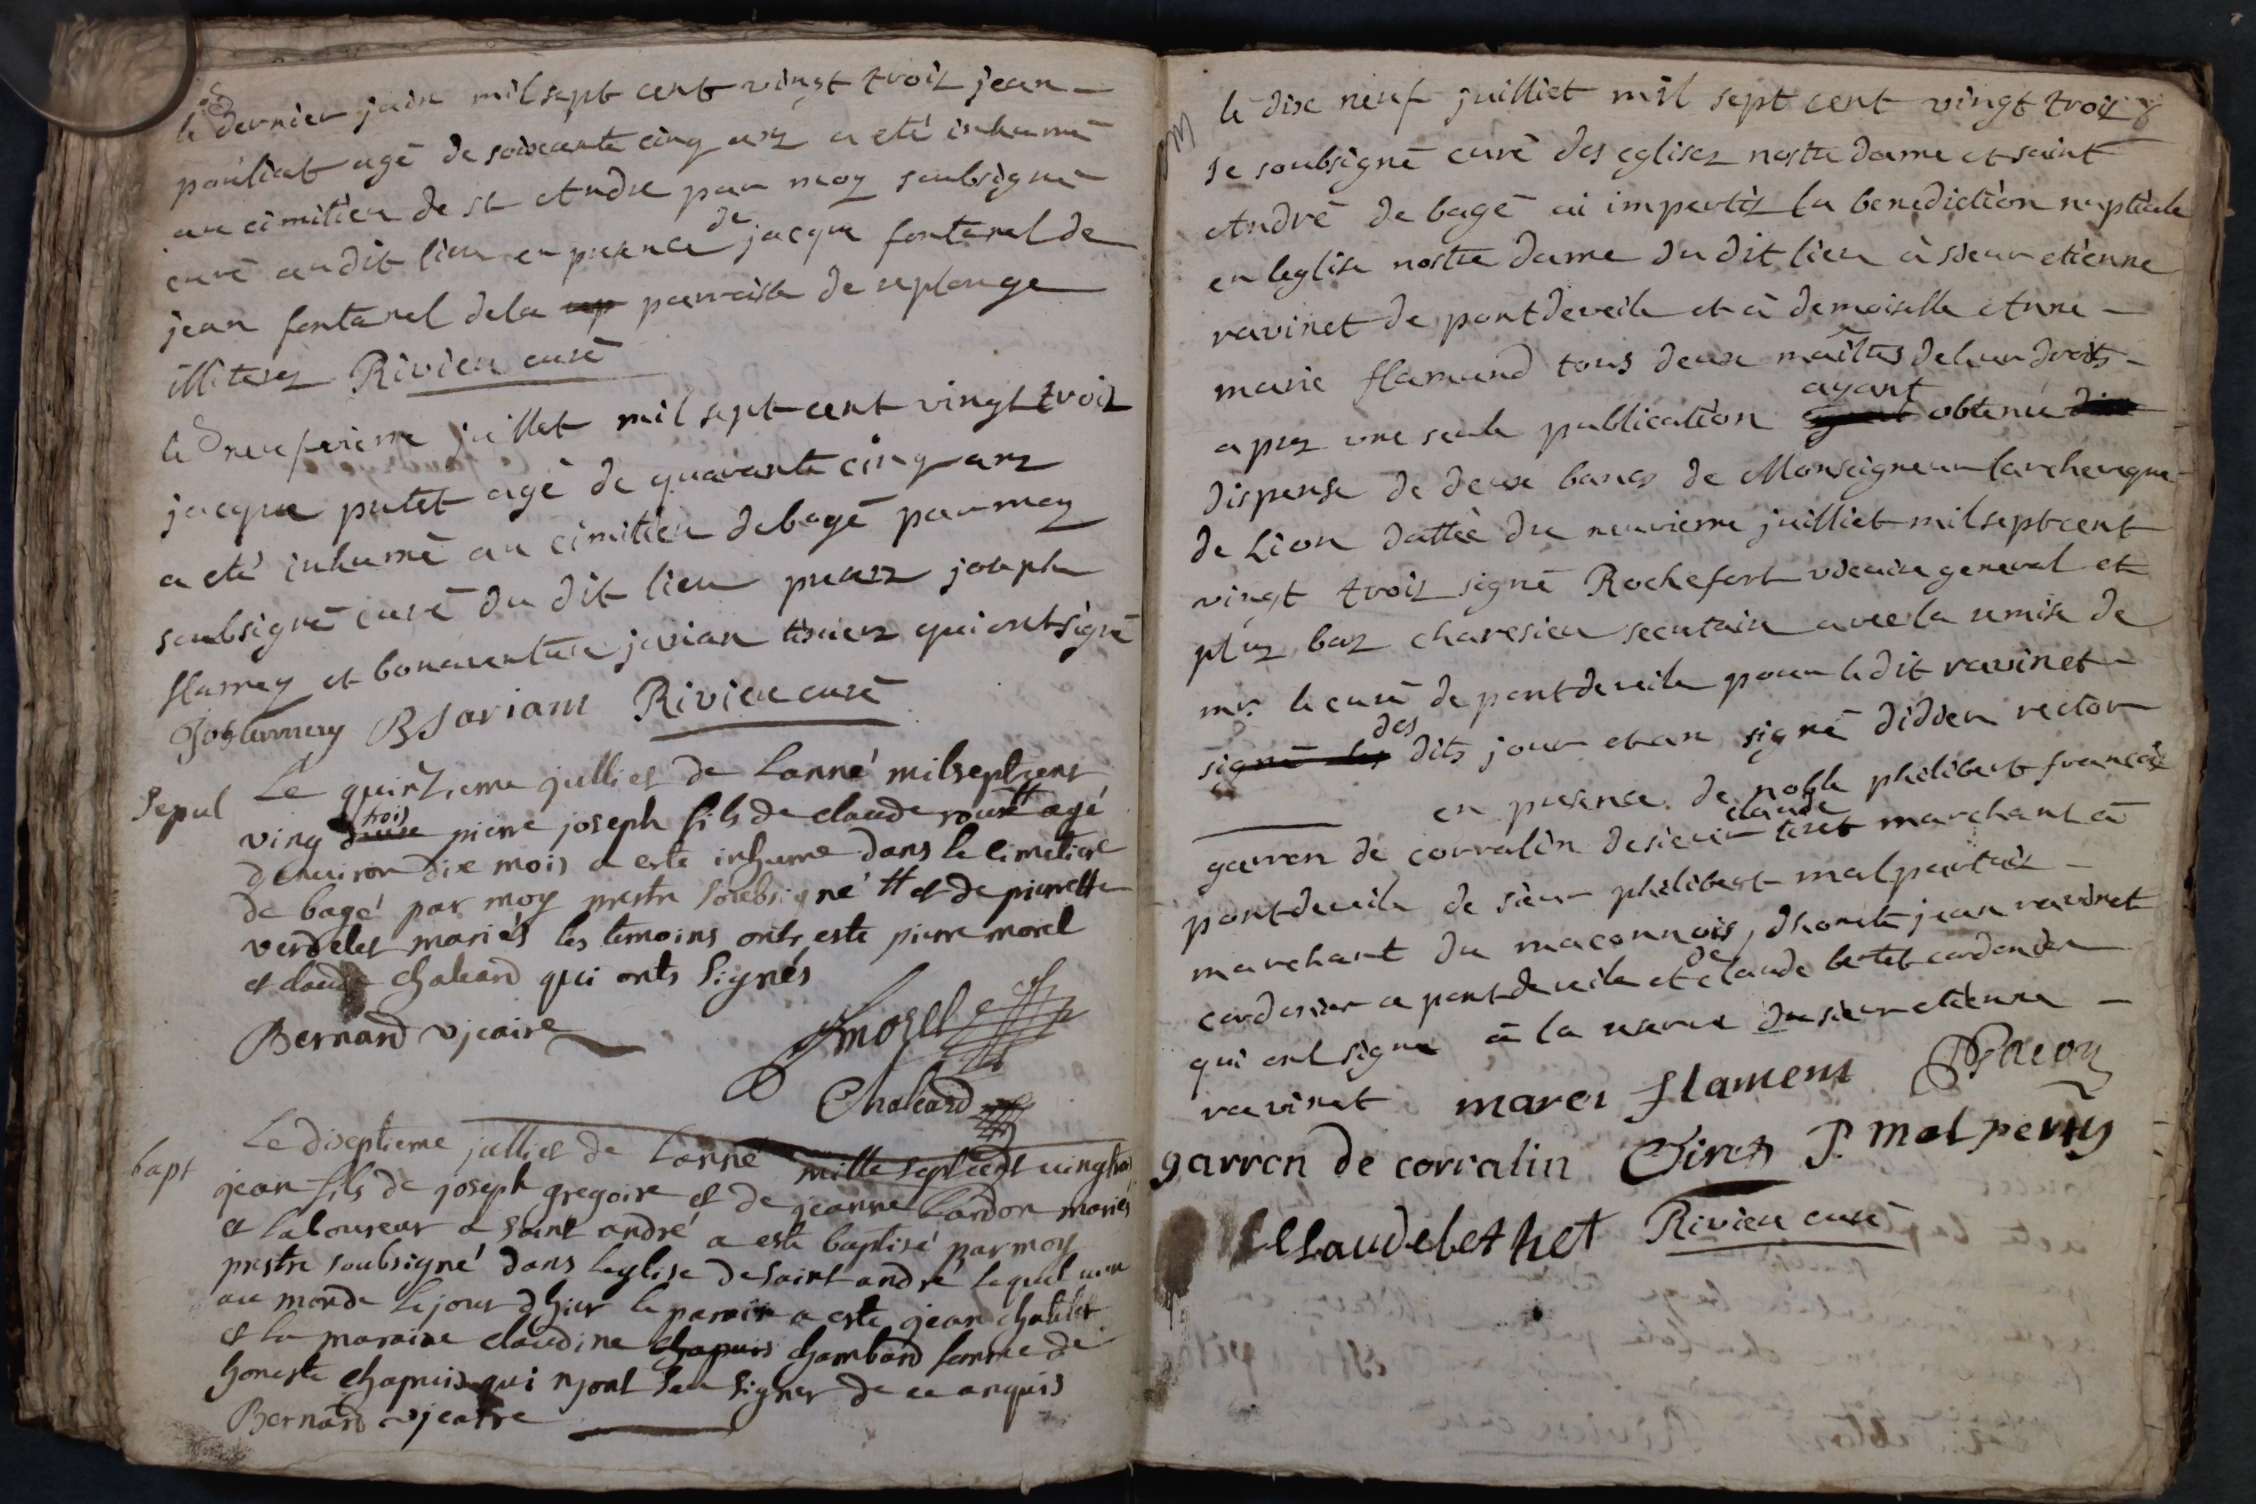 le dernier juin mil sept cent vingt trois jean
pouliat agé de soixante cinq ans a eté inhumé
au cimitiere de st Andre par moy soubsigné
curé audit lieu en presence de jacque fontanel de
jean fontanel de la parroisse de replonge
illiteres Rivier curé
le neufvieme juillet mil sept cent vingt trois
jacque putet agé de quarante cinq ans
a eté inhumé au cimitiere de bagé par moy
soubsigné curé du dit lieu presens joseph
flamey et bonaventure jarian qui ont signé
BJariant Rivier curé
Sepul
Le quinzieme julliet de Lanné milseptcent
ving trois pierre joseph fils de claude agé
denviron dix mois a este inhume dans le cimetiere
de bagé par moy prestre soubsigné # et de pierrette
verdelet mariés les temoins onts este pierre morel
et claude chaleard qui onts signés
Bernard vjcaire
morel
Chaleard
bapt
Le diseptieme julliet de Lanné mille septcent vingtrois
jean fils de joseph gregoire et de jeanne Lardon mariés
et laboureur a saint andré a este baptisé par moy
prestre soubsigné dans leglise de saint andré lequel
au monde le jour dhier le parain a este jean
et la maraine claudine chapuis chambard femme de
honeste chapuis qui njont seu signer de ce anquis
Bernard vjcaire
le dixe neuf juilliet mil sept cent vingt trois
Je soubsigné curé des eglises nostre dame et saint
Andre de bagé ai impertis la benediction nuptiale
en leglise nostre dame du dit lieu à sieur etienne
ravinet de pontdeveile et à demoiselle Anne
marie flamand tous deux maîtres de leur droits
apres une seule publication ayant obtenu
dispense de deux bancs de Monseigneur larcheveque
de Lion dattée du neuvieme juilliet mil sept cent
vingt trois signé Rochefort vicaire general et
plus bas charesieu secretaire avec la remise de
mr. le curé de pontdeveile pour le dit ravinet
signé des dits jour et an signé didier rector
en presence de noble philibert francois
garron de corralin de sieur claude tiret marchant à
pontdeveile de sieur philibert malpertuis
marchant du maconnois, dhonete jean ravinet
cordonier a pontdeveile et de claude bertet cordonier
qui ont signé à la reserve du sieur etienne
ravinet marei flament
garron de corralin Tiret P. Malpertuy
Claudebethet Rivier curé